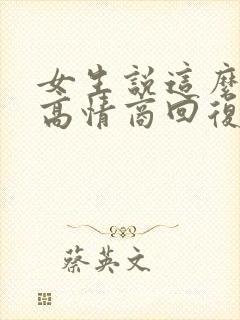 女生説這麽
高情商回復
蔡英文